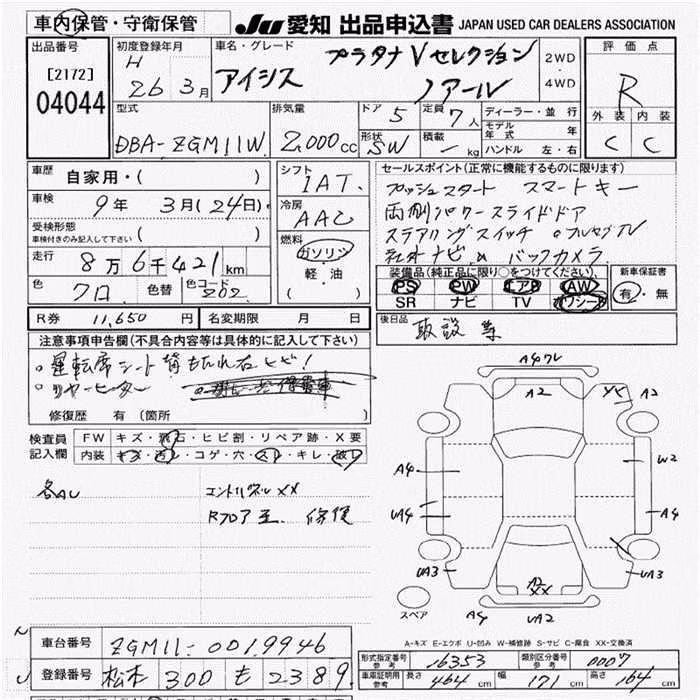 車内保管・守衛保管
JU 愛知 出品申込書 JAPAN USED CAR DEALERS ASSOCIATION
出品番号
[2172]
04044
初度登録年月
H
26 3月
車名・グレード
プラタナ V セレクション
アイシス ノアール
2WD
・
4WD
評価点
R
外装 内装
C C
型式
DBA-ZGM11W
排気量
2,000cc
ドア 5
形状 SW
定員 7人
積載 kg
ディーラー・並行
モデル年式 年
ハンドル 左・右
車歴 自家用・( )
車検 9年 3月(24日)
受検形態
車検付きのみ記入して下さい ( )
走行 8万6千421km
色 クロ 色替 色コード 202
シフト
IAT
冷房
AAC
燃料
ガソリン
・
軽・油
( )
セールスポイント(正常に機能するものに限ります)
プッシュスタート スマートキー
両側パワースライドドア
ステアリングスイッチ フルセグTV
社外ナビ バックカメラ
装備品(純正品に限り○をつけてください)
PS PW エアB AW
SR ナビ TV カワシート
新車保証書
有・無
R券 11,650円 名変期限 月 日
後日品 取説等
注意事項申告欄(不具合内容等は具体的に記入して下さい)
運転席シート背もたれ右ヒビ!
リヤヒーター
修復歴 有(箇所 )
検査員記入欄
FW キズ・飛石・ヒビ割・リペア跡・X要
内装 キズ・汚レ・コゲ・穴・スレ・キレ・破レ
各AU
エンドパネルXX
Rフロア歪 修復
A4ワレ
A2
XX A2
A4
W2
UA4
A4
UA3
UA3
A2
XX
A4
UA2
スペア
A-キズ E-エクボ U-凹み W-補修跡 S-サビ C-腐食 XX-交換済
車台番号 ZGM11-0019946
登録番号 松本 300 も 2389
形式指定番号参考 16353 類別区分番号参考 0007
車庫証明用参考 長さ 464cm 幅 171cm 高さ 164cm